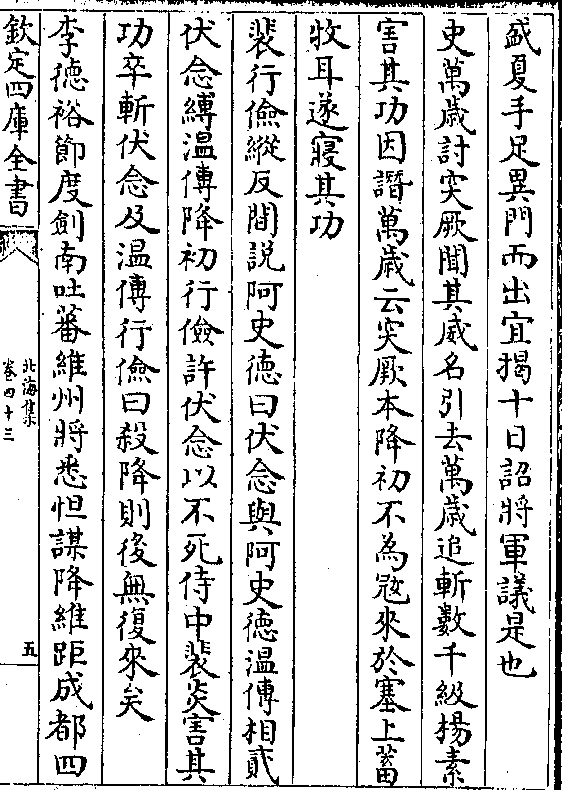 盛夏手足異門而出宜揭十日詔將軍議是也
史萬歲討突厥聞其威名引去萬歲追斬數千級楊素
害其功因譖萬歲云突厥本降初不為宼來於塞上蓄
牧耳遂寢其功
裴行儉縱反間說阿史德曰伏念與阿史徳溫傅相貳
伏念縛溫傅降初行儉許伏念以不死侍中裴炎害其
功卒斬伏念及溫傅行儉曰殺降則後無復來矣
李德裕節度劍南吐蕃維州將悉怛謀降維距成都四
欽定四庫全書
北海集
卷四十三
五